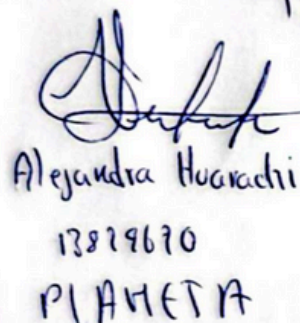 Alejandra Huarachi
13829670
PLANETA